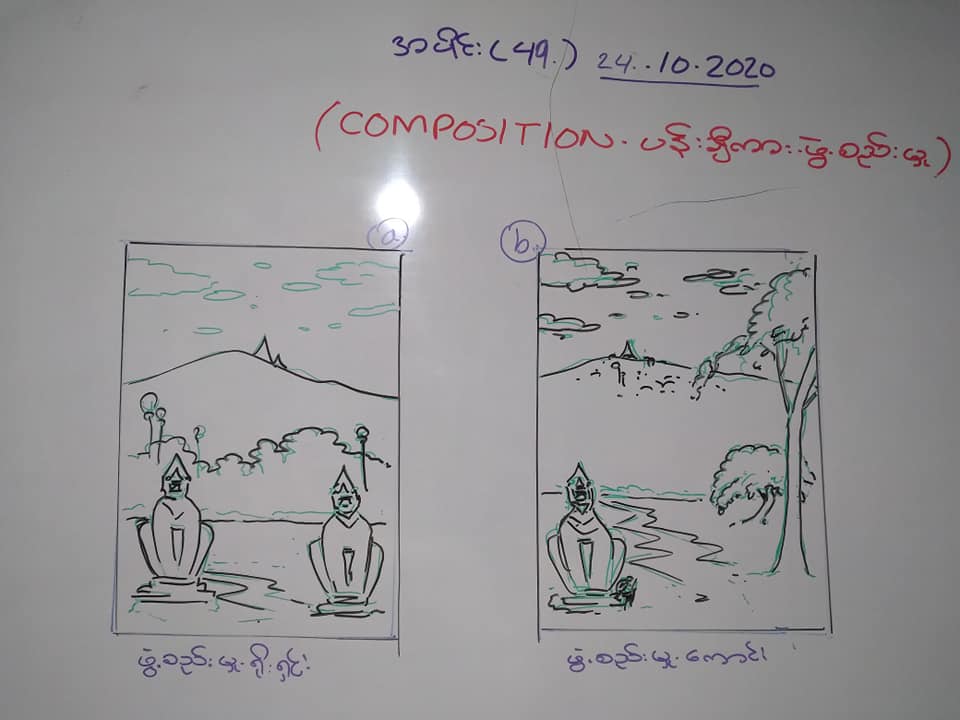 အပိုင်း (49.) 24..10.2020
(COMPOSITION. ပန်းချီကား.ဖွဲ့.စည်း.မှု)
a.
b.
ဖွဲ့.စည်း.မှု.ရိုး.ရှင်း
ဖွဲ့.စည်း.မှု.ကောင်း